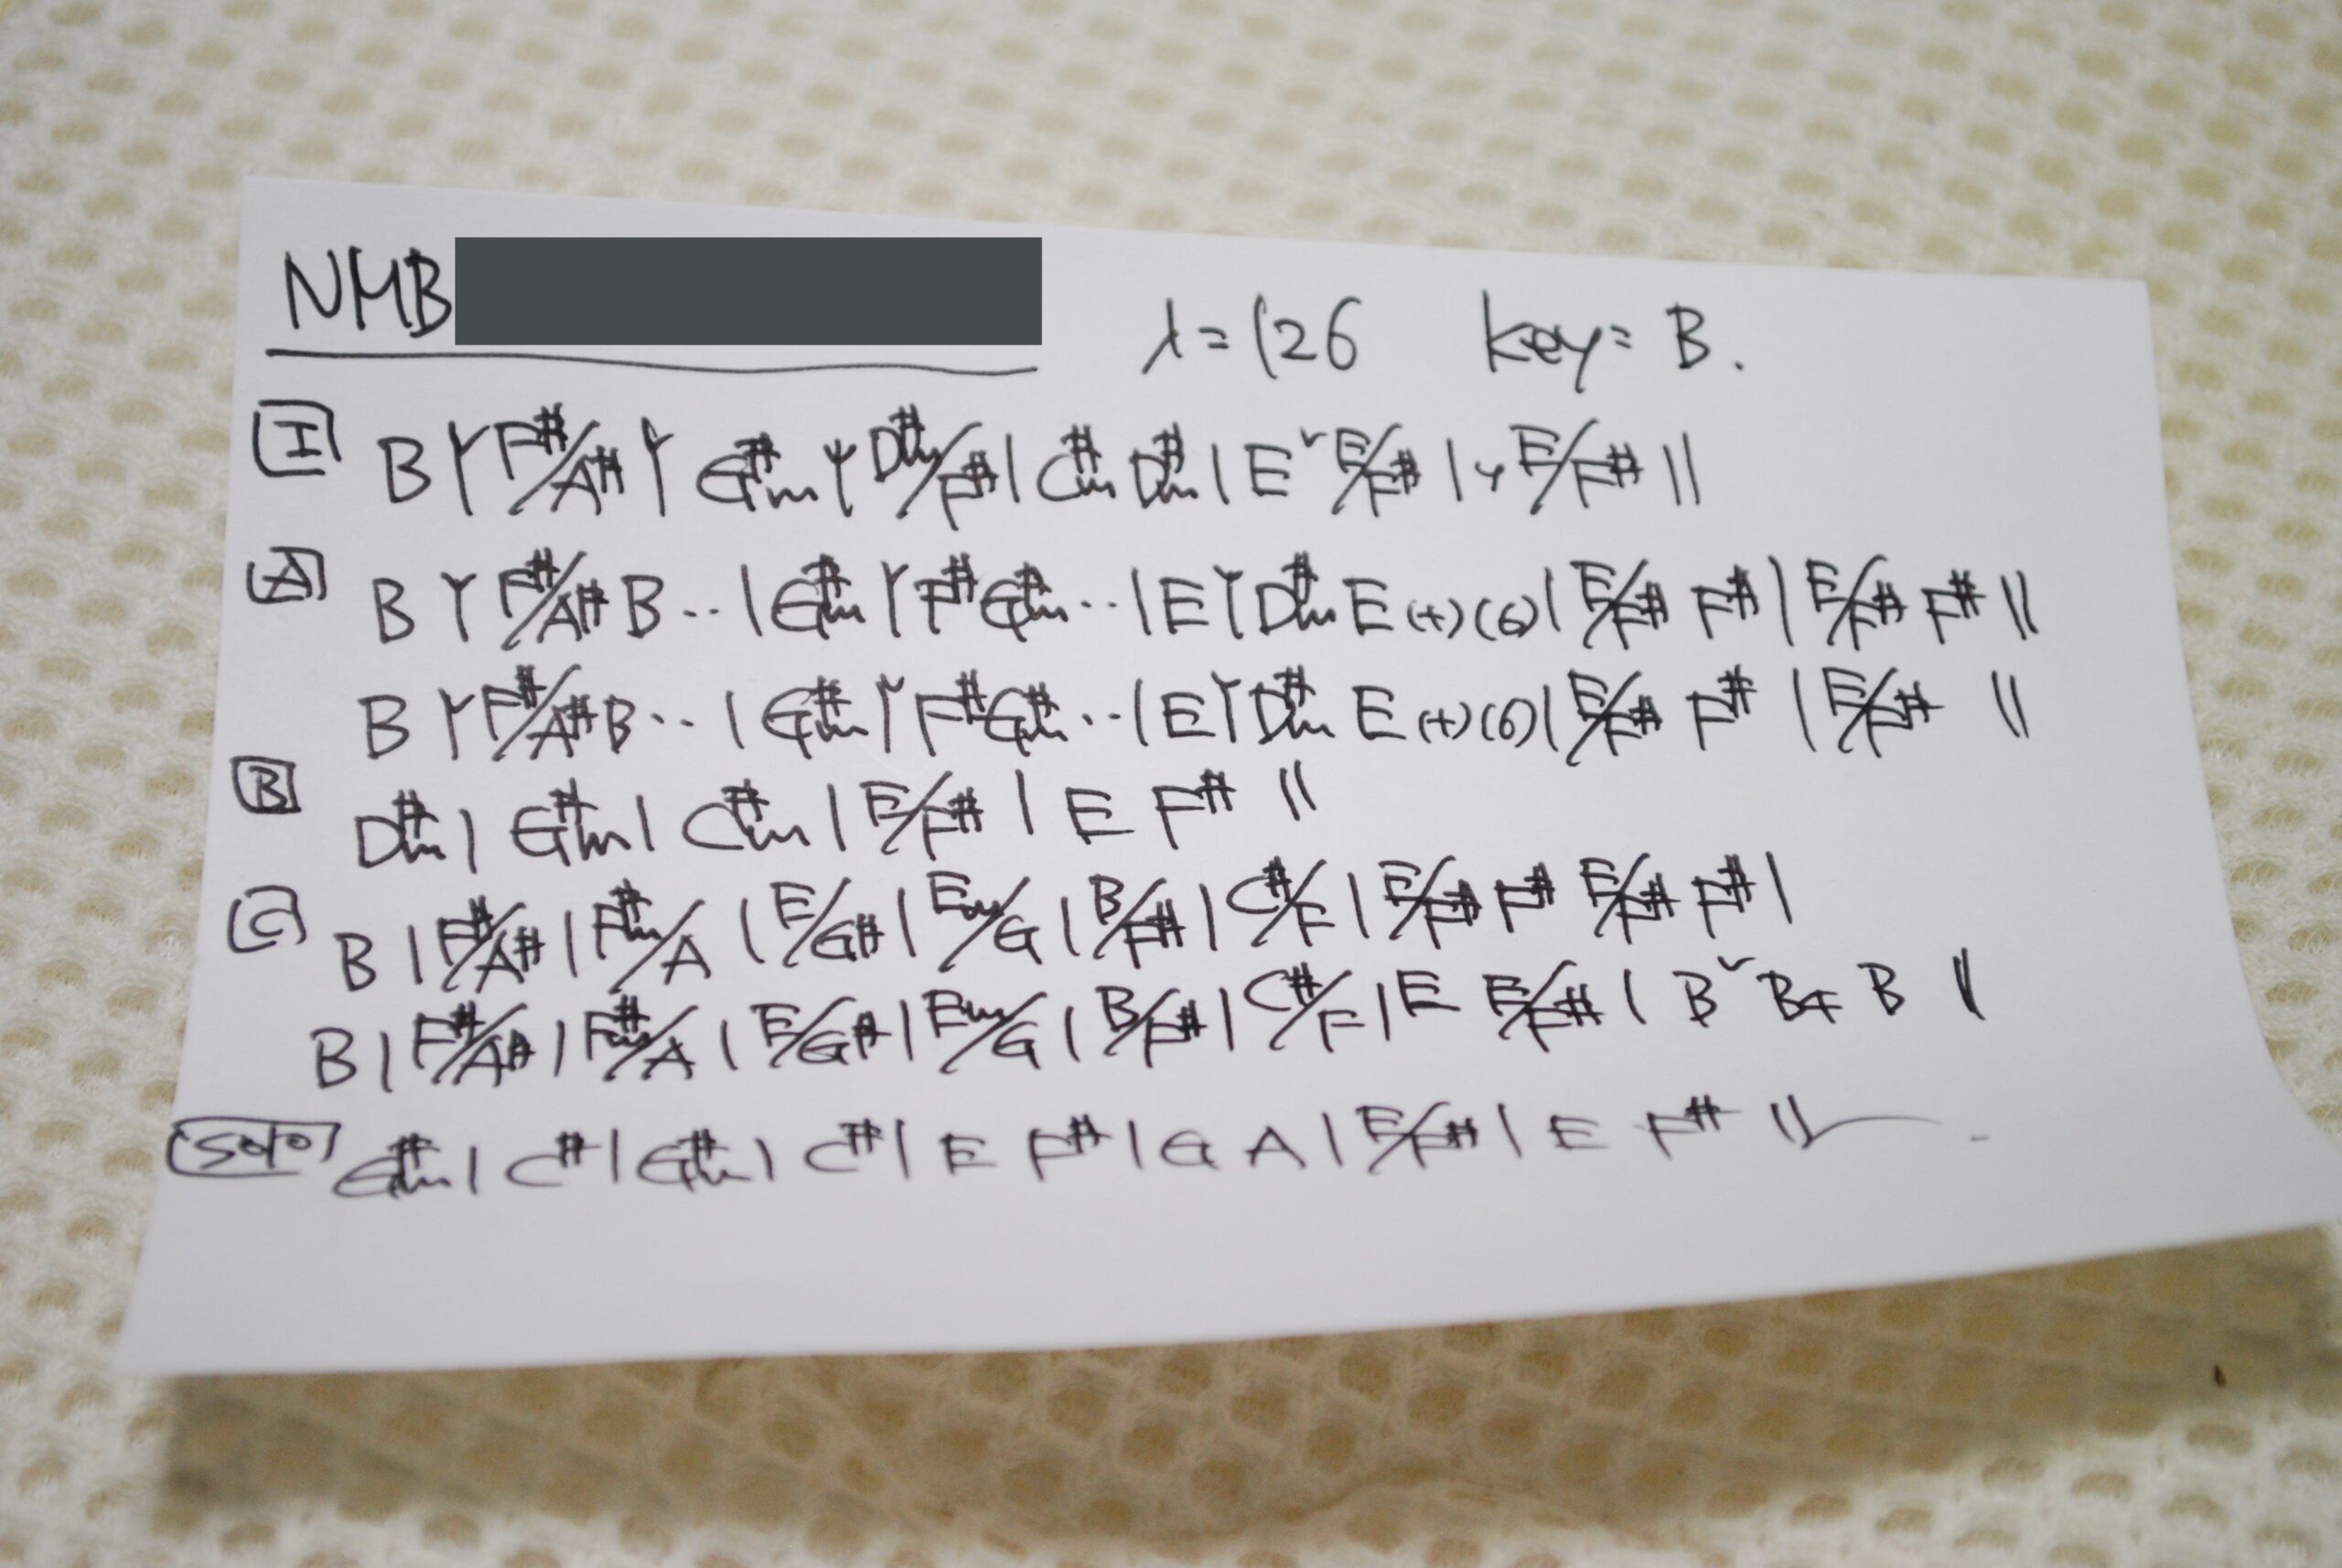 NMB
♩=126 key=B.
I B | F#/A# | G#m | D#m/F# | C#m D#m | E E/F# | E/F# ||
A B | F#/A# B ‥ | G#m | F# G#m ‥ | E | D#m E (+) (6) | E/F# F# | E/F# F# ||
B | F#/A# B ‥ | G#m | F# G#m ‥ | E | D#m E (+) (6) | E/F# F# | E/F# ||
B D#m | G#m | C#m | E/F# | E F# ||
C B | F#/A# | F#m/A | E/G# | Em/G | B/F# | C#/F | E/F# F# E/F# F# |
B | F#/A# | F#m/A | E/G# | Em/G | B/F# | C#/F | E E/F# | B B4 B ||
Solo G#m | C# | G#m | C# | E F# | G A | E/F# | E F# ||